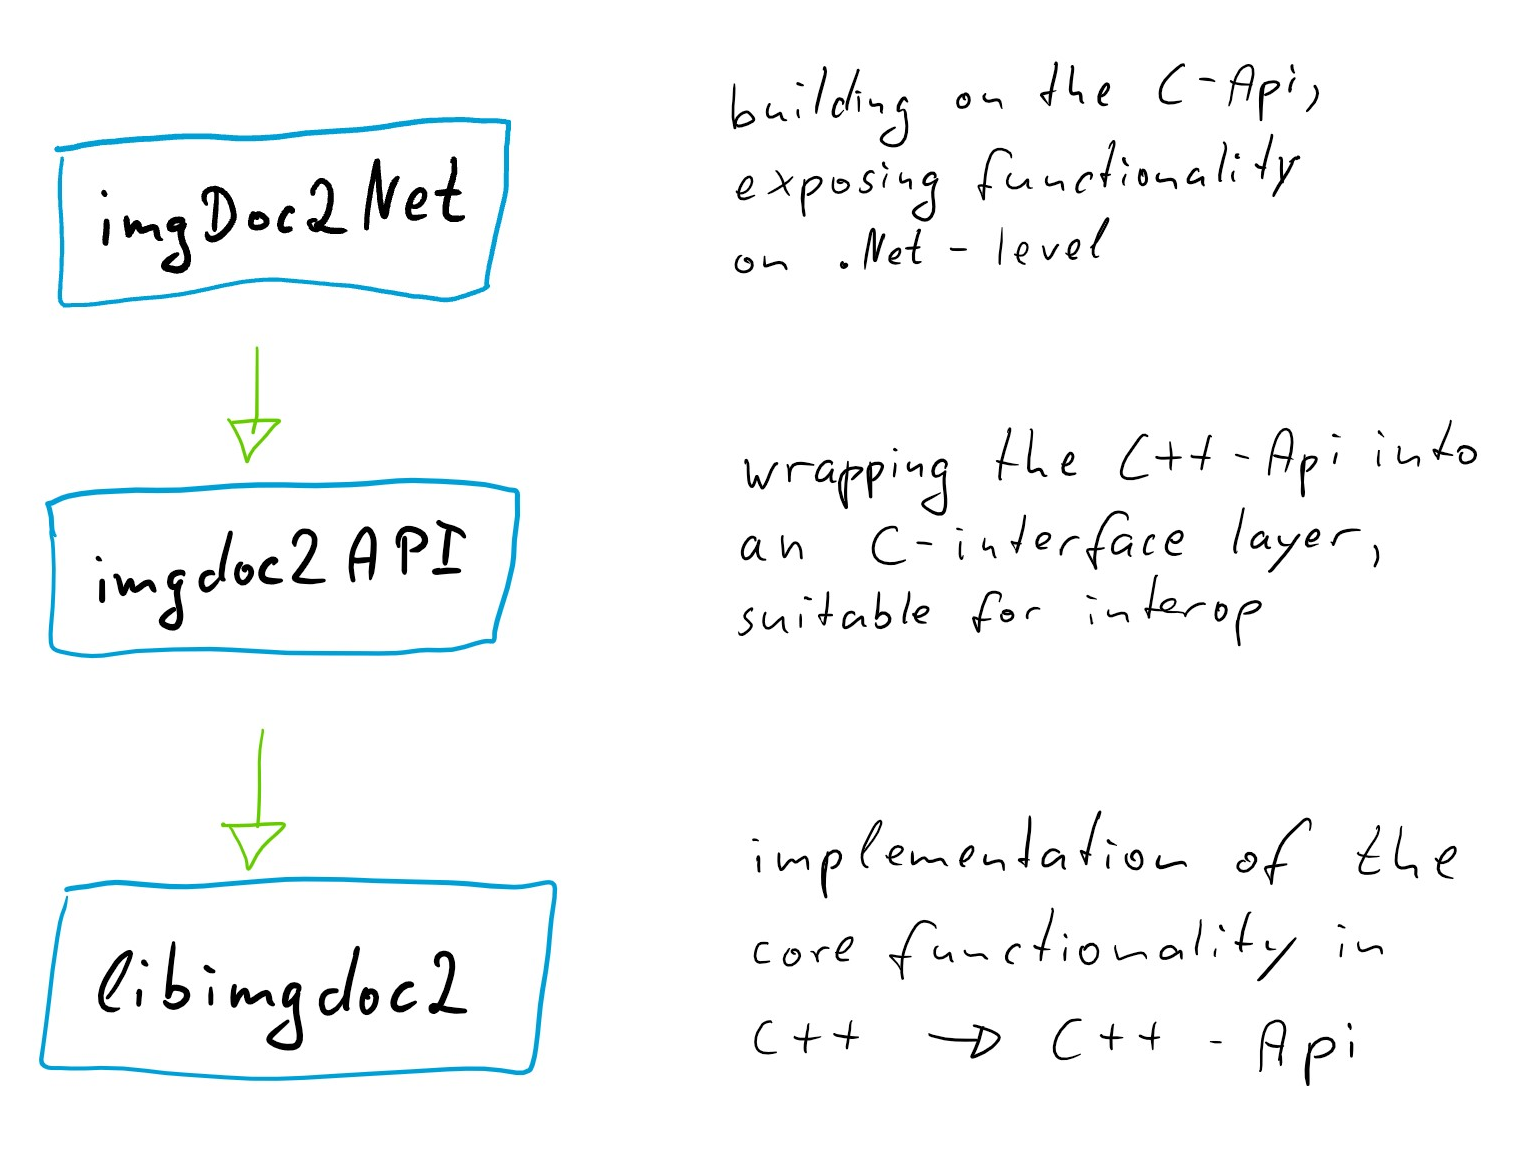 imgDoc2Net
building on the C-Api,
exposing functionality
on .Net-level
imgdoc2API
wrapping the C++-Api into
an C-interface layer,
suitable for interop
libimgdoc2
implementation of the
core functionality in
C++ → C++-Api